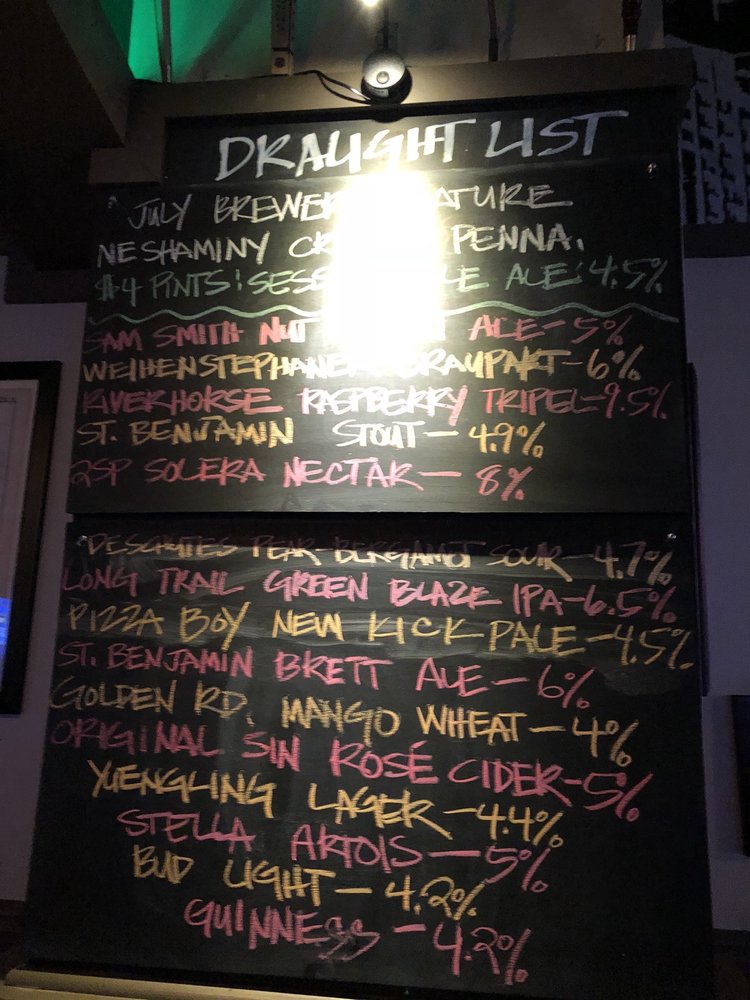 DRAUGHT LIST
JULY BREWER ATURE
NESHAMINY CR PENNA.
$4 PINTS! SESS LE ALE! 4.5%
SAM SMITH NUT ALE - 5%
WEIHENSTEPHANER BRAUPAKT - 6%
RIVERHORSE RASPBERRY TRIPEL - 9.5%
ST. BENJAMIN STOUT - 4.9%
2SP SOLERA NECTAR - 8%
DESCHUTES PEAR-BERGAMOT SOUR - 4.7%
LONG TRAIL GREEN BLAZE IPA - 6.5%
PIZZA BOY NEW KICK PALE - 4.5%
ST. BENJAMIN BRETT ALE - 6%
GOLDEN RD. MANGO WHEAT - 4%
ORIGINAL SIN ROSÉ CIDER - 5%
YUENGLING LAGER - 4.4%
STELLA ARTOIS - 5%
BUD LIGHT - 4.2%
GUINNESS - 4.2%